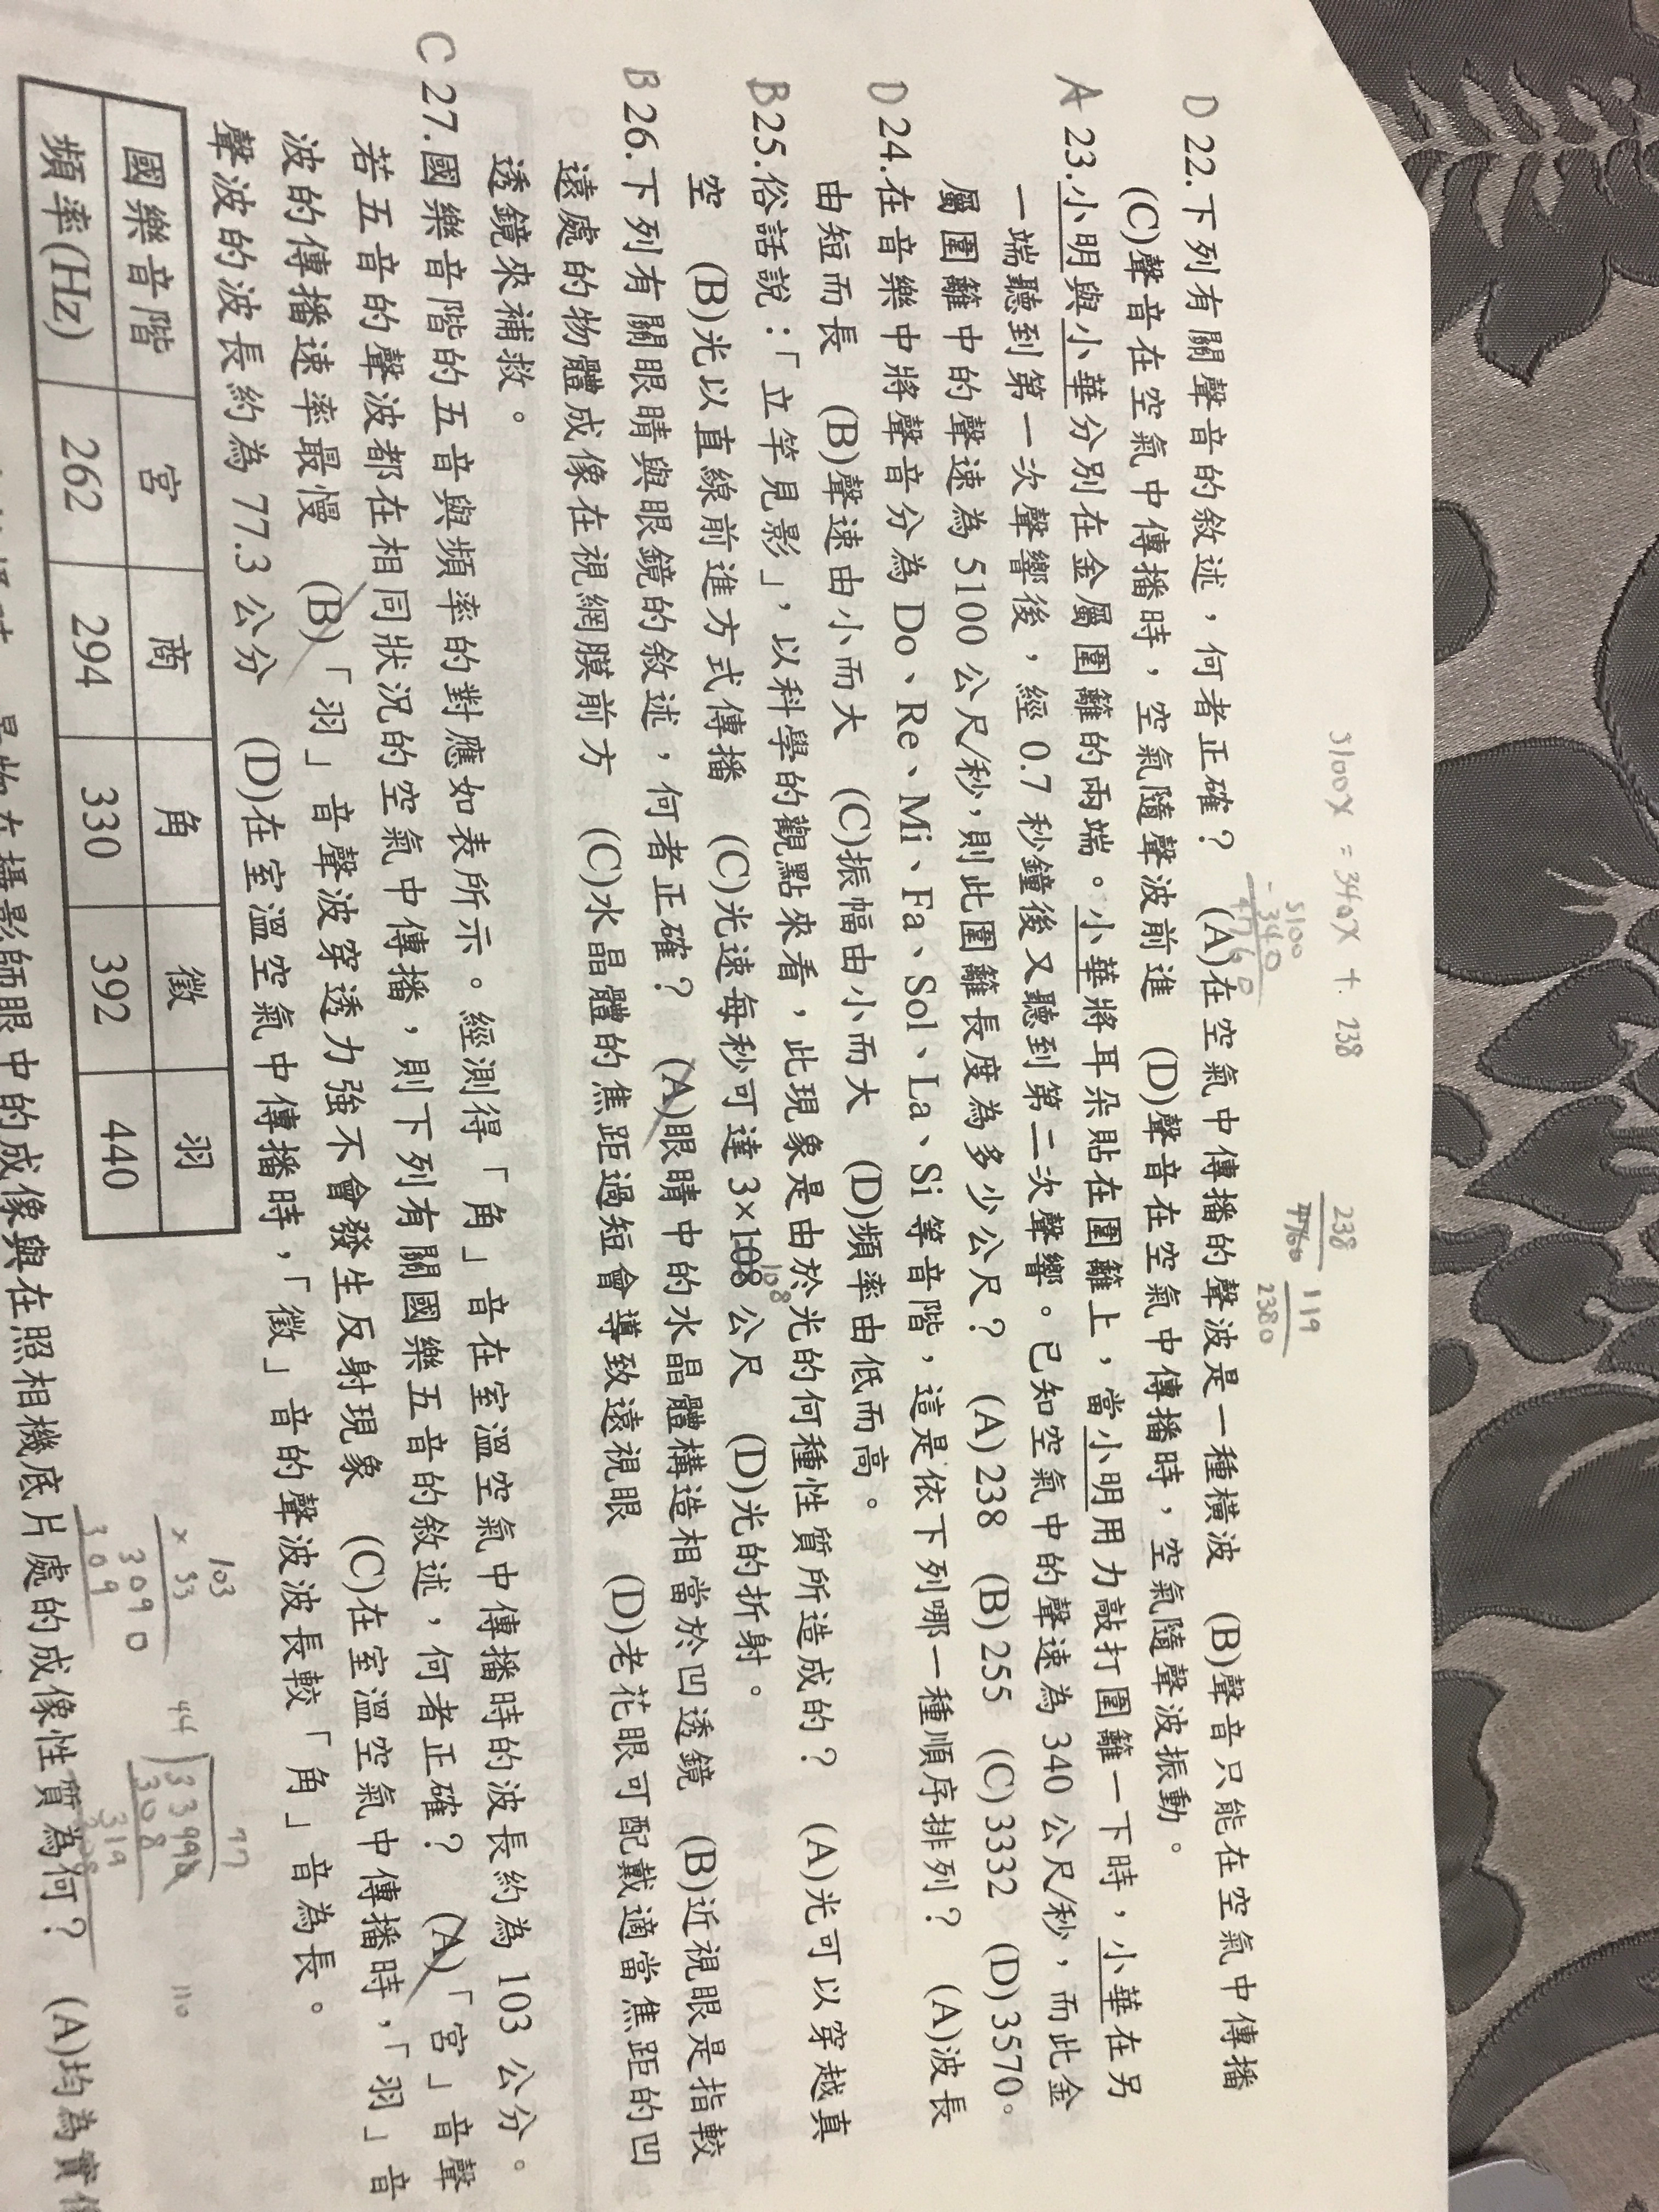 5100X = 340X + 238
5100
- 340
4760
238
4760
119
2380
D 22.下列有關聲音的敘述，何者正確？　(A)在空氣中傳播的聲波是一種橫波　(B)聲音只能在空氣中傳播
(C)聲音在空氣中傳播時，空氣隨聲波前進　(D)聲音在空氣中傳播時，空氣隨聲波振動。
A 23.小明與小華分別在金屬圍籬的兩端。小華將耳朵貼在圍籬上，當小明用力敲打圍籬一下時，小華在另
一端聽到第一次聲響後，經 0.7 秒鐘後又聽到第二次聲響。已知空氣中的聲速為 340 公尺/秒，而此金
屬圍籬中的聲速為 5100 公尺/秒，則此圍籬長度為多少公尺？　(A)238　(B)255　(C)3332　(D)3570。
D 24.在音樂中將聲音分為 Do、Re、Mi、Fa、Sol、La、Si 等音階，這是依下列哪一種順序排列？　(A)波長
由短而長　(B)聲速由小而大　(C)振幅由小而大　(D)頻率由低而高。
B 25.俗話說：「立竿見影」，以科學的觀點來看，此現象是由於光的何種性質所造成的？　(A)光可以穿越真
空　(B)光以直線前進方式傳播　(C)光速每秒可達 3×108 公尺　(D)光的折射。
10⁸
B 26.下列有關眼睛與眼鏡的敘述，何者正確？　(A)眼睛中的水晶體構造相當於凹透鏡　(B)近視眼是指較
遠處的物體成像在視網膜前方　(C)水晶體的焦距過短會導致遠視眼　(D)老花眼可配戴適當焦距的凹
透鏡來補救。
C 27.國樂音階的五音與頻率的對應如表所示。經測得「角」音在室溫空氣中傳播時的波長約為 103 公分。
若五音的聲波都在相同狀況的空氣中傳播，則下列有關國樂五音的敘述，何者正確？　(A)「宮」音聲
波的傳播速率最慢　(B)「羽」音聲波穿透力強不會發生反射現象　(C)在室溫空氣中傳播時，「羽」音
聲波的波長約為 77.3 公分　(D)在室溫空氣中傳播時，「徵」音的聲波波長較「角」音為長。
國樂音階 宮 商 角 徵 羽
頻率(Hz) 262 294 330 392 440
103
× 33
3090
309
77
44
308
319
110
的成像與在照相機底片處的成像性質為何？　(A)均為實像